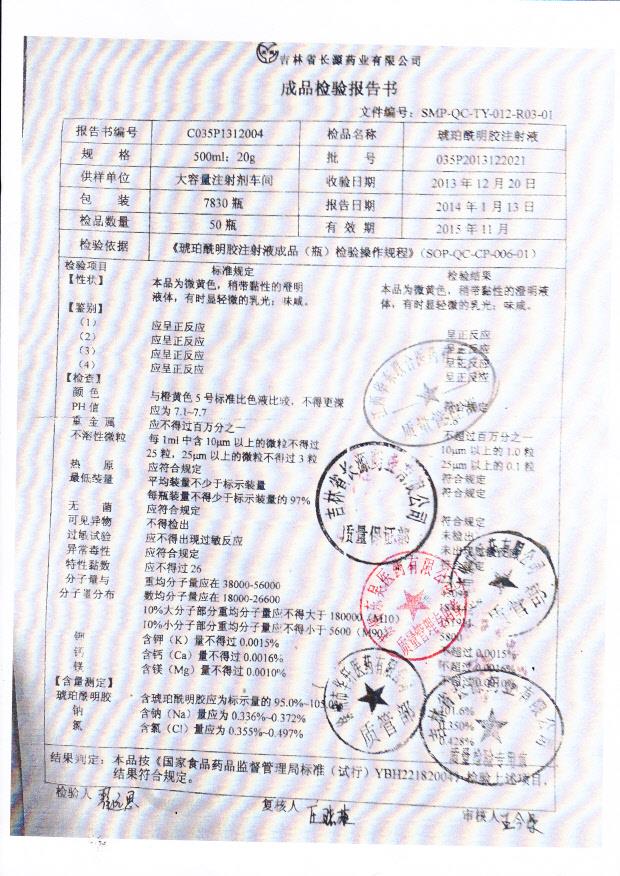 吉林省长源药业有限公司
成品检验报告书
文件编号：SMP-QC-TY-012-R03-01
报告书编号 C035P1312004 检品名称 琥珀酰明胶注射液
规 格 500ml：20g 批 号 035P2013122021
供样单位 大容量注射剂车间 收验日期 2013 年 12 月 20 日
包 装 7830 瓶 报告日期 2014 年 1 月 13 日
检品数量 50 瓶 有 效 期 2015 年 11 月
检验依据 《琥珀酰明胶注射液成品（瓶）检验操作规程》（SOP-QC-CP-006-01）
检验项目 标准规定 检验结果
【性状】 本品为微黄色，稍带黏性的澄明 本品为微黄色，稍带黏性的澄明液
液体，有时显轻微的乳光；味咸。 体，有时显轻微的乳光；味咸。
【鉴别】
（1） 应呈正反应 呈正反应
（2） 应呈正反应 呈正反应
（3） 应呈正反应 呈正反应
（4） 应呈正反应 呈正反应
【检查】
颜 色 与橙黄色 5 号标准比色液比较，不得更深 符合规定
PH 值 应为 7.1~7.7
重 金 属 应不得过百万分之一 不超过百万分之一
不溶性微粒 每 1ml 中含 10μm 以上的微粒不得过 10μm 以上的 1.0 粒
25 粒，25μm 以上的微粒不得过 3 粒 25μm 以上的 0.1 粒
热 原 应符合规定 符合规定
最低装量 平均装量不少于标示装量 符合规定
每瓶装量不得少于标示装量的 97%
无 菌 应符合规定 符合规定
可见异物 不得检出 未检出
过敏试验 应不得出现过敏反应 未出现过敏反应
异常毒性 应符合规定
特性黏数 应不得过 26
分子量与 重均分子量应在 38000-56000
分子量分布 数均分子量应在 18000-26600
10%大分子部分重均分子量应不得大于 180000（M10）
10%小分子部分重均分子量应不得小于 5600（M90）
钾 含钾（K）量不得过 0.0015% 不超过 0.0015%
钙 含钙（Ca）量不得过 0.0016% 不超过 0.0016%
镁 含镁（Mg）量不得过 0.0010%
【含量测定】
琥珀酰明胶 含琥珀酰明胶应为标示量的 95.0%~105.0%
钠 含钠（Na）量应为 0.336%~0.372%
氯 含氯（Cl）量应为 0.355%~0.497%
结果判定： 本品按《国家食品药品监督管理局标准（试行）YBH22182004》检验上述项目，
结果符合规定。
检验人 复核人 审核人
吉林省长源药业有限公司
质量保证部
质管部
质管部
质量检验专用章